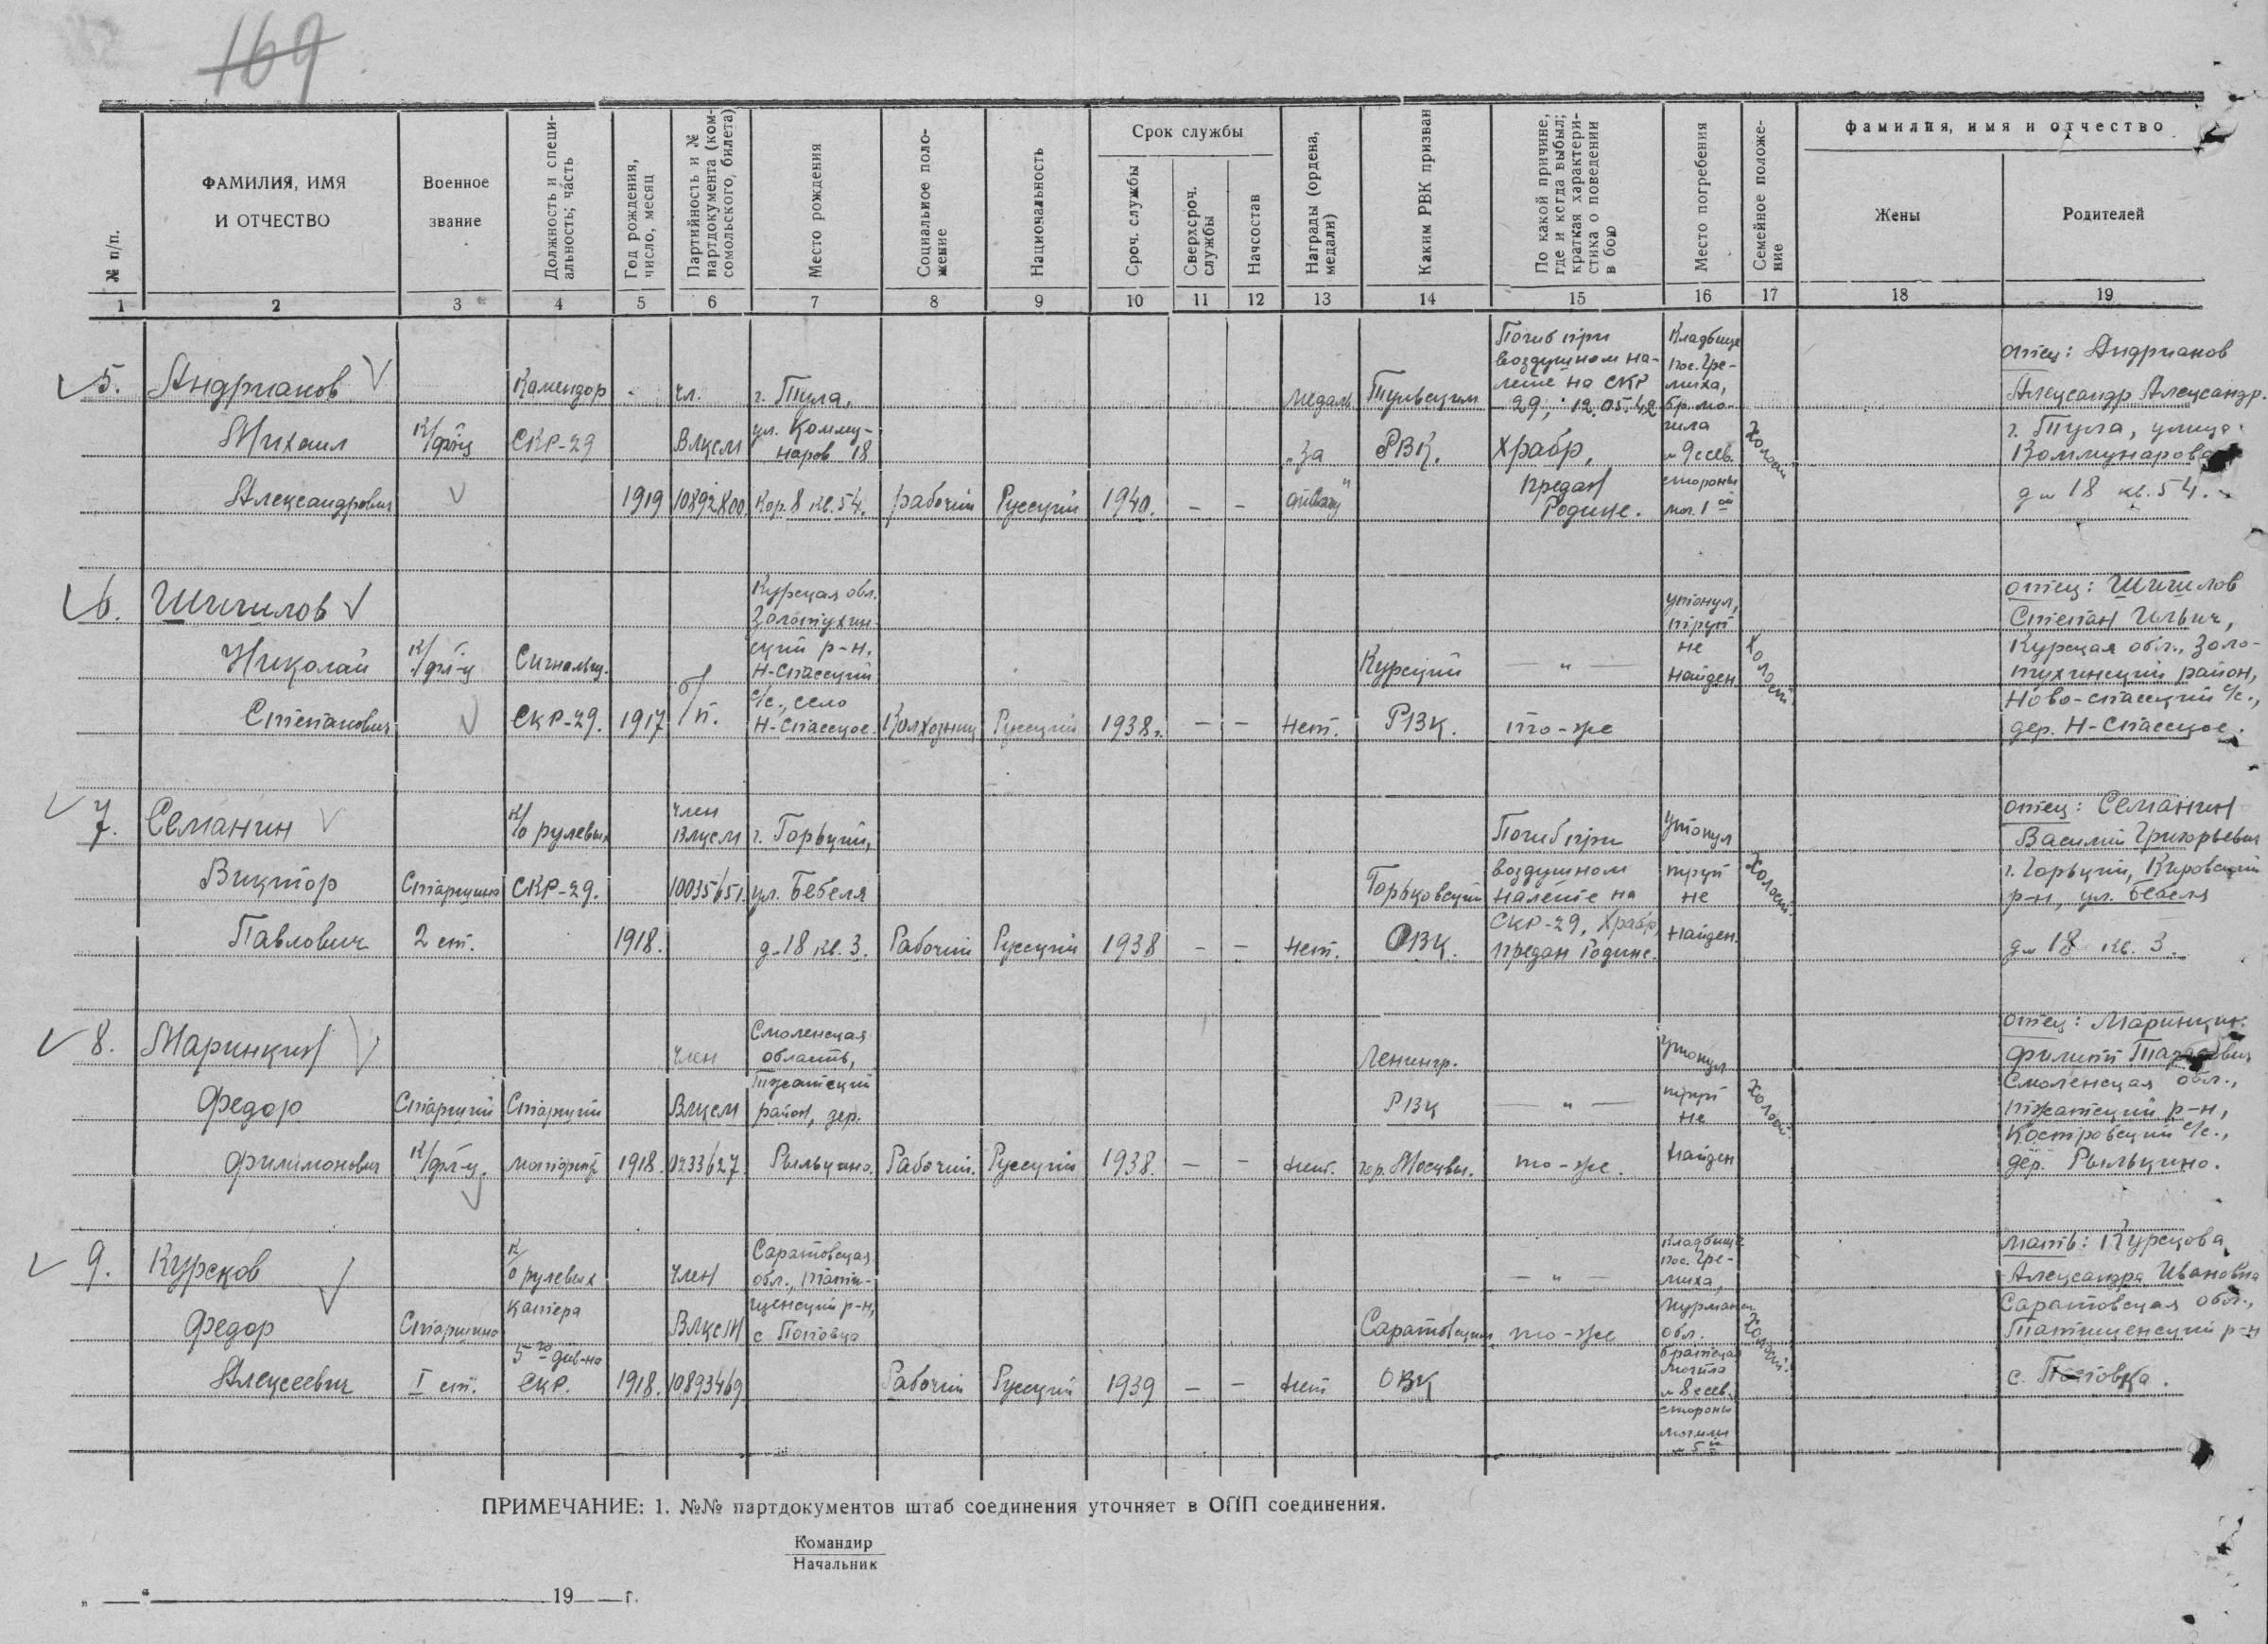 169
№ п/п.
ФАМИЛИЯ, ИМЯ
И ОТЧЕСТВО
Военное
звание
Должность и специ-
альность; часть
Год рождения,
число, месяц
Партийность и №
партдокумента (ком-
сомольского, билета)
Место рождения
Социальное поло-
жение
Национальность
Срок службы
Сроч. службы
Сверхсроч.
службы
Начсостав
Награды (ордена,
медали)
Каким РВК призван
По какой причине,
где и когда выбыл;
краткая характери-
стика о поведении
в бою
Место погребения
Семейное положе-
ние
Фамилия, имя и отчество
Жены
Родителей
1 2 3 4 5 6 7 8 9 10 11 12 13 14 15 16 17 18 19
5.
Андрианов
Михаил
Александрович
К/фл-ц
Комендор
СКР-29
1919
чл.
Влксм
г. Тула,
ул. Комму-
наров 18
Кор. 8 кв. 54.
рабочий
Русский
1940.
— —
медаль
„За
отвагу"
Тульским
РВК.
Погиб при
воздушном на-
лете на СКР
29, 12.05.42
храбр,
предан
Родине.
Кладбище
пос. Гре-
миха,
бр. мо-
гила
№ 9 с сев.
стороны
мог. 1ой
Холост
отец: Андрианов
Александр Александр.
г. Тула, улица
Коммунаров
д № 18 кв. 54.
6.
Шишлов
Николай
Степанович
К/фл-ц
Сигнальщ.
СКР-29.
1917
б/п.
Курская обл.
Золотухин-
ский р-н.
Н-Спасский
с/с., село
Н-Спасское.
Колхозник
Русский
1938г.
— —
нет.
Курский
РВК.
— " —
то-же
утонул,
труп
не
найден
Холост.
отец: Шишлов
Степан Ильич,
Курская обл., Золо-
тухинский район,
Ново-спасский с/с.,
дер. Н-Спасское.
7.
Семанин
Виктор
Павлович
Старшина
2 ст.
К/о рулевых
СКР-29.
1918.
член
Влксм
10035651.
г. Горький,
ул. Бебеля
д. 18 кв. 3.
Рабочий
Русский
1938
— —
нет.
Горьковский
ОВК.
Погиб при
воздушном
налете на
СКР-29, Храбр,
предан Родине.
Утонул
труп
не
найден.
Холост.
отец: Семанин
Василий Григорьевич
г. Горький, Кировский
р-н, ул. Бебеля
д № 18 кв. 3.
8.
Маринкин
Федор
Филимонович
Старший
К/фл-ц.
Старший
1918.
член
Влксм
0233627.
Смоленская
область,
Гжатский
район, дер.
Рыльцино.
Рабочий.
Русский
1938.
— —
нет.
Ленингр.
РВК
гор. Москвы.
— " —
то-же.
Утонул
труп
не
найден
Холост.
отец: Маринкин
Филипп
Смоленская обл.,
гжатский р-н,
Костровский с/с.,
дер. Рыльцино.
9.
Курсков
Федор
Алексеевич
Старшина
I ст.
К/о рулевых
катера
5го див-на
СКР.
1918.
член
Влксм
10893469
Саратовская
обл.,
р-н,
с Поповка
Рабочий
Русский
1939
— —
нет
Саратовским
ОВК
— " —
то-же
Кладбище
пос. Гре-
миха,
Мурманск.
обл.
братская
могила
№ 8 с сев.
стороны
могилы
№ 5й
Холост.
мать: Курскова
Александра Ивановна
Саратовская обл.,
Татищенский р-н
с. Поповка.
ПРИМЕЧАНИЕ: 1. №№ партдокументов штаб соединения уточняет в ОПП соединения.
Командир
Начальник
„ “ 19 г.